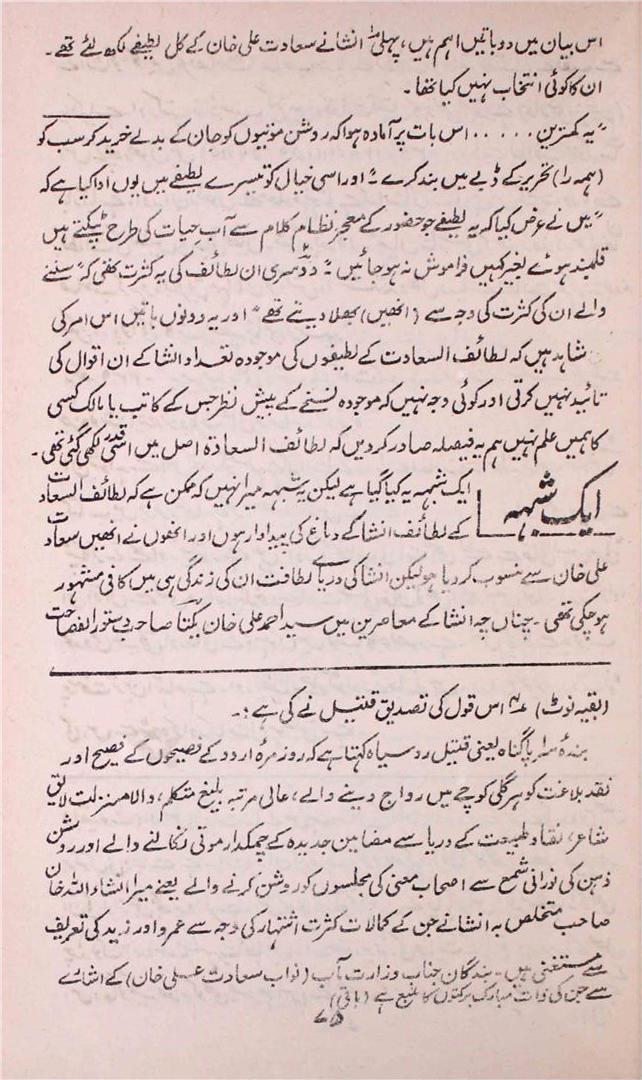 اس بیان میں دو باتیں اہم ہیں، پہلی انشا نے سعادت علی خان کے کل لطیفے لکھ لئے تھے۔
ان کا کوئی انتخاب نہیں کیا تھا۔
"یہ کمترین ..... اس بات پر آمادہ ہوا کہ روشن موتیوں کو جان کے بدلے خرید کر سب کو
(ہمہ را) تحریر کے ڈبے میں بند کرے" اور اسی خیال کو تیسرے لطیفے میں یوں ادا کیا ہے کہ
"میں نے عرض کیا کہ یہ لطیفے جو حضور کے معجز نظام کلام سے آب حیات کی طرح ٹپکتے ہیں
قلمبند ہوئے بغیر کہیں فراموش نہ ہو جائیں" دوسری ان لطائف کی یہ کثرت تھی کہ "سننے
والے ان کی کثرت کی وجہ سے (انھیں) بھلا دیتے تھے" اور یہ دونوں باتیں اس امر کی
شاہد ہیں کہ لطائف السعادت کے لطیفوں کی موجودہ تعداد انشا کے ان اقوال کی
تائید نہیں کرتی اور کوئی وجہ نہیں کہ موجودہ نسخے کے پیش نظر جس کے کاتب یا مالک کسی
کا ہمیں علم نہیں ہم یہ فیصلہ صادر کر دیں کہ لطائف السعادة اصل میں اسی قدر لکھی گئی تھی۔
ایک شبہہ
ایک شبہہ یہ کیا گیا ہے لیکن یہ شبہہ میرا نہیں کہ ممکن ہے کہ لطائف السعادت
کے لطائف انشا کے دماغ کی پیداوار ہوں اور انھوں نے انھیں سعادت
علی خان سے منسوب کر دیا ہو لیکن انشا کی دریائے لطافت ان کی زندگی ہی میں کافی مشہور
ہو چکی تھی۔ چناں چہ انشا کے معاصرین میں سید احمد علی خان یکتا صاحب دستور الفصاحت
(بقیہ نوٹ) اس قول کی تصدیق قتیل نے کی ہے:۔
بندۂ سراپا گناہ یعنی قتیل رو سیاہ کہتا ہے کہ روزمرۂ اردو کے فصیحوں کے فصیح اور
نقد بلاغت کو ہر گلی کوچے میں رواج دینے والے، عالی مرتبہ بلیغ متکلم، والا منزلت لایق
شاعر، نقاد طبیعت کے دریا سے مضامین جدیدہ کے چمکدار موتی نکالنے والے اور روشن
ذہن کی نورانی شمع سے اصحاب معنی کی مجلسوں کو روشن کرنے والے یعنے میر انشاء اللہ خان
صاحب متخلص بہ انشا نے جن کے کمالات کثرت اشتہار کی وجہ سے عمرو اور زید کی تعریف
سے مستغنی ہیں۔ بندگان جناب وزارت آب (نواب سعادت علی خان) کے اشارے
سے جن کی ذات مبارک برکتوں کا منبع ہے (باقی)